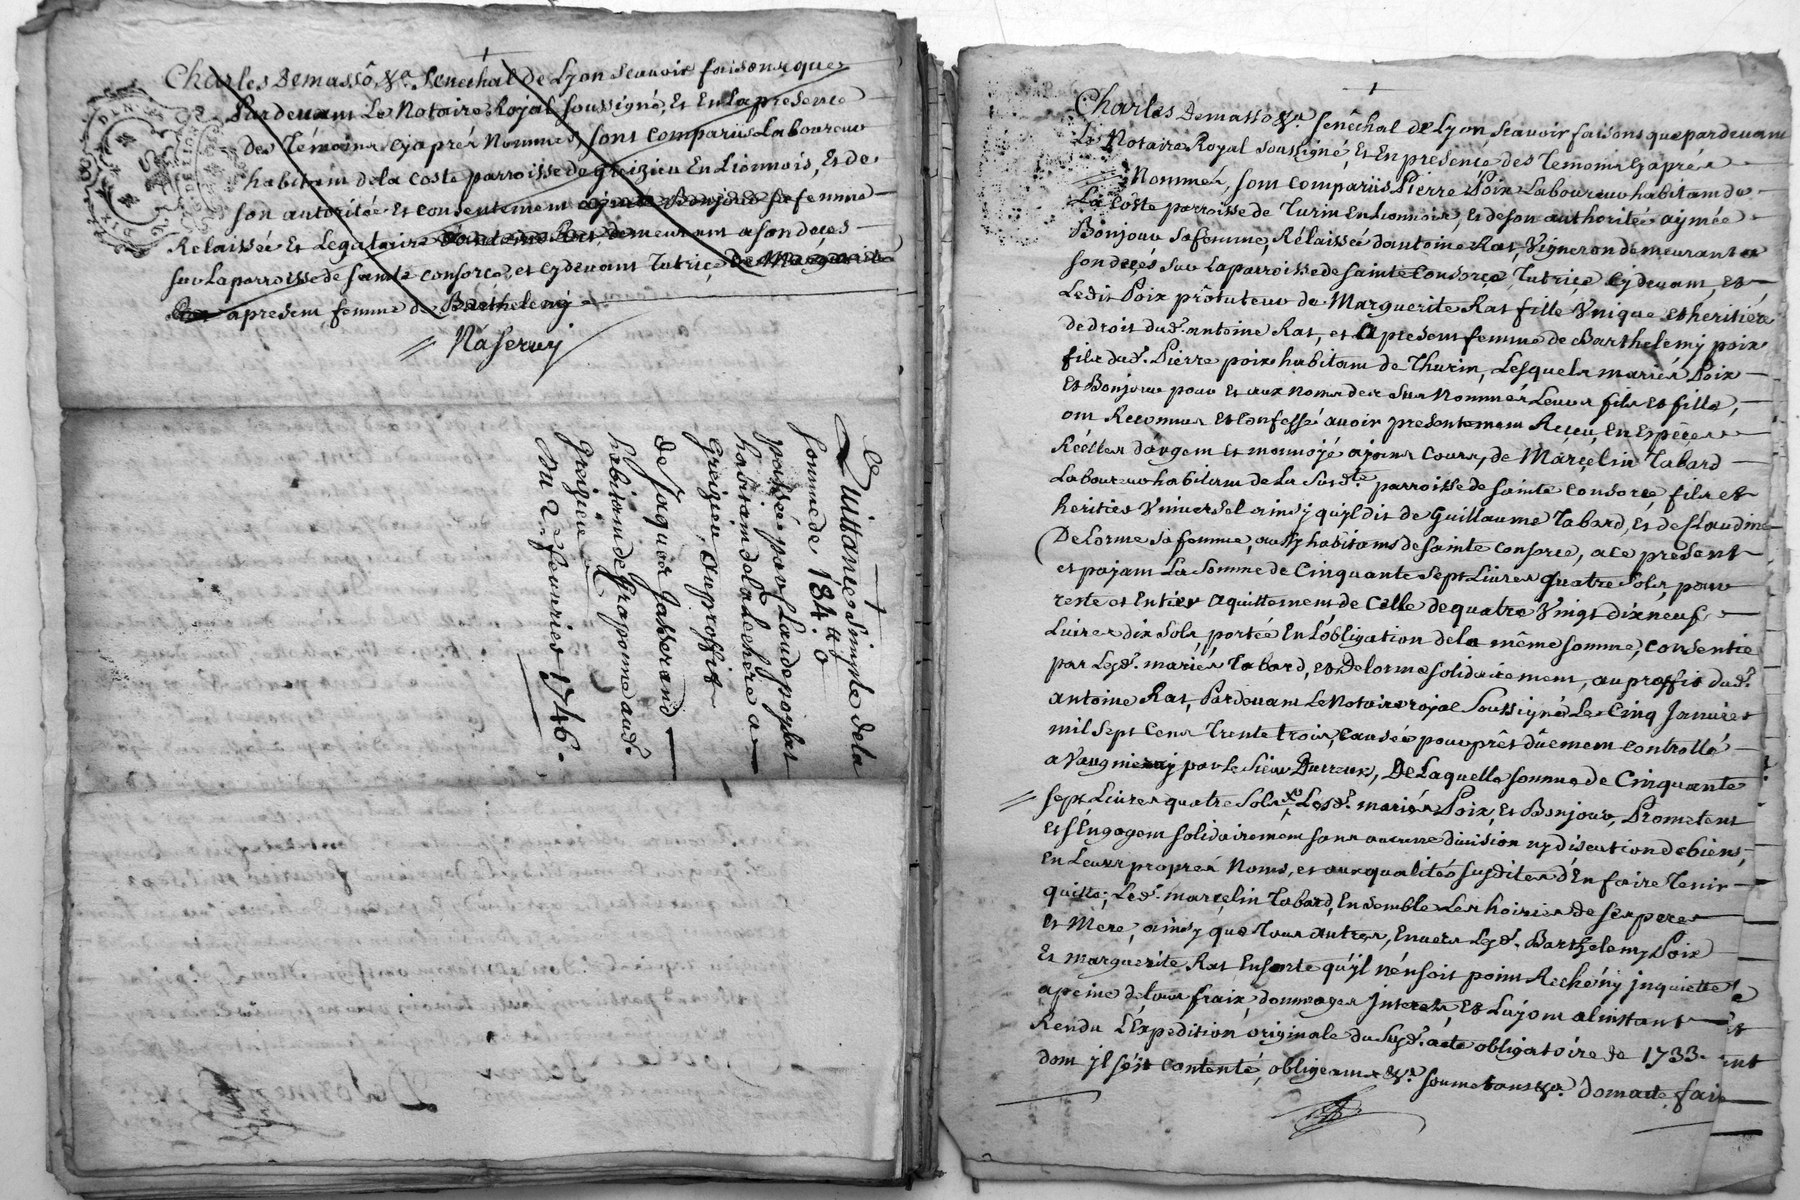 Charles Demassô &a. Senechal de Lyon scavoir faisons que
Pardevant Le Notaire Royal soussigné, Et En La presence
des Témoins cyaprés Nommes, sont comparüs Laboureur
habitant de la Coste parroisse de Greizieu En Lionnois, Et de
son autoritée Et consentement Bonjour sa femme
Relaissée Et Legataire demeurant a son deçes
sur La parroisse de sainte Consorce, et cydevant Tutriçe de Marguerite
apresent femme de Barthelemy
Na servy
Quittance simple de la
somme de 184 ₶ 0
passée par Claude poyat
habitant de la Lechere a
Greizieu, au proffit
de Jaques Jasserand
habitant de Grapome aud.
Greizieu
Du 2e. feuvrier 1746.
Charles Demasso &a. Senêchal de Lyon scavoir faisons que pardevant
Le Notaire Royal soussigné Et En presençe des Temoins Cyaprés
Nommés, sont Compariis Pierre Poix Laboureur habitant de
La Coste parroisse de Turin En Lionnois, et de son authoritée aymée
Bonjour sa femme, Rélaissée d'antoine Rat, Vigneron demeurant a
son deçes sur La parroisse de sainte Consorçe, Tutriçe Cydevant, et
Ledit Poix prôtuteur de Marguerite Rat fille Vnique et heritiére
de droit dud. antoine Rat, et apresent femme de Barthelemy poix
fils dud. Pierre poix habitant de Thurin, Lesquels mariés Poix
Et Bonjour pour et aux noms des sus Nommés Leurs fils et fille,
ont Reconnus et Confessé avoir presentement Reçeu, En Espêçes
Réélles d'argent et monnoyé ajant Cours, de Marçelin Tabard
Laboureur habitant de La Susd.te parroisse de sainte Consorce fils et
heritier Vniversel ainsy qu'yl dit de Guillaume Tabard, Et de Claudine
Delorme sa femme, aussy habitants de sainte Consorce, a ce présent
et pajant La Somme de Cinquante Sept Livres quatre Sols, pour
reste et Entier aquittement de Celle de quatre Vingt dix neuf
Livres dix Sols, portée En L'obligation de la même somme, consentie
par Lesd. mariés Tabard, et Delorme solidairement, au proffit dud.
antoine Rat, Pardevant Le Notaire royal Soussigné Le Cinq Janvier
mil Sept Cens Trente trois, Causée pour prêt dûement Controllé
a Vaugneray par le Sieur Durreux, De Laquelle somme de Cinquante
sept Livres quatre Sols Lesd. mariés Poix, Et Bonjour, Prometent
et s'Engagent solidairement sans aucune division ny discution de biens,
En Leurs propres Noms, et aux qualités susdites d'En faire Tenir
quitte; Led. marçelin Tabard, Ensemble Les hoiries de ses pere
et Mere, ainsy que Tous autres, Envers Lesd. Barthelemy Poix
Et Marguerite Rat Ensorte qu'yl n'en soit point Reché ny jnquiette
a peine de tous fraix, dommages Jnterets, Et Luy ont alinstant
Rendu L'Expedition originale du Susd. acte obligatoire de 1733.
dont jl s'est Contenté, obligeant &a. soumetans &a. dont acte, fait